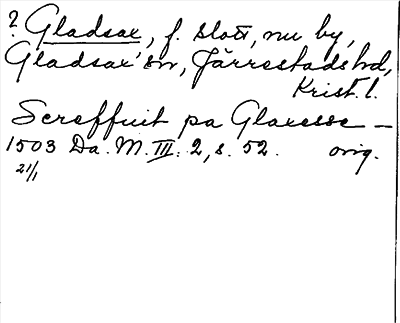 ? Gladsax, f. slott, nu by,
Gladsax' sn, Järrestads hd,
Krist. l.
Screffuit pa Glaxesse –
1503 Da. M. III: 2, s. 52. orig.
21/1